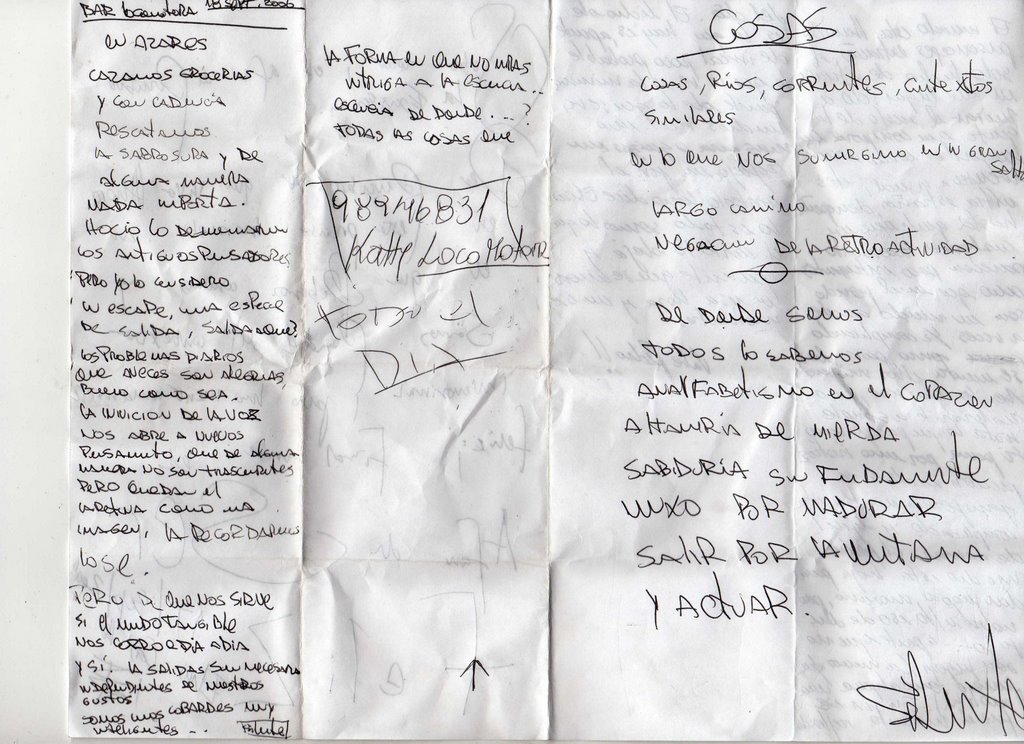 BAR locomotora 18 SEPT. 2006
EN AZARES
CAZAMOS GROCERIAS
Y CON CADENCIA
RESCATAMOS
LA SABROSURA Y DE
ALGUNA MANERA
NADA IMPORTA.
LOS ANTIGUOS PENSADORES
PERO YO lo CONSIDERO
UN ESCAPE, UNA ESPECIE
DE SALIDA, SALIDA A QUE?
LOS PROBLEMAS DIARIOS
QUE AVECES SON ALEGRIAS,
BUENO COMO SEA.
LA DE LA VOZ
NOS ABRE A NUEVOS
PENSAMIENTO, QUE DE ALGUNA
MANERA NO SON TRASCENDENTES
PERO QUEDAN EN el
COMO UNA
IMAGEN, LA RECORDAREMOS
lo SE.
PERO DE QUE NOS SIRVE
SI EL MUNDO TANGIBLE
NOS CORROE DIA A DIA
Y SI. LA SALIDAS SON NECESARIA
INDEPENDIENTES DE NUESTROS
GUSTOS
SOMOS UNOS COBARDES MUY
VALIENTES ...
LA FORMA EN QUE NO MIRAS
INTRIGA A LA ESENCIA..
ESENCIA DE DONDE....?
TODAS LAS COSAS QUE
98946831
Katty Locomotora
TODO EL
DIA
COSAS
COSAS, RIOS, CORRIENTES, CONTEXTOS
SIMILARES
EN lo QUE NOS SUMERGIMO EN UN GRAN
SALTO
LARGO CAMINO
NEGACION DE LA RETROACTIVIDAD
DE DONDE SOMOS
TODOS lo SABEMOS
ANALFABETISMO EN el CORAZON
ALTANERIA DE MIERDA
SABIDURIA SIN FUNDAMENTE
NEXO POR MADURAR
SALIR POR LA VENTANA
Y ACTUAR.